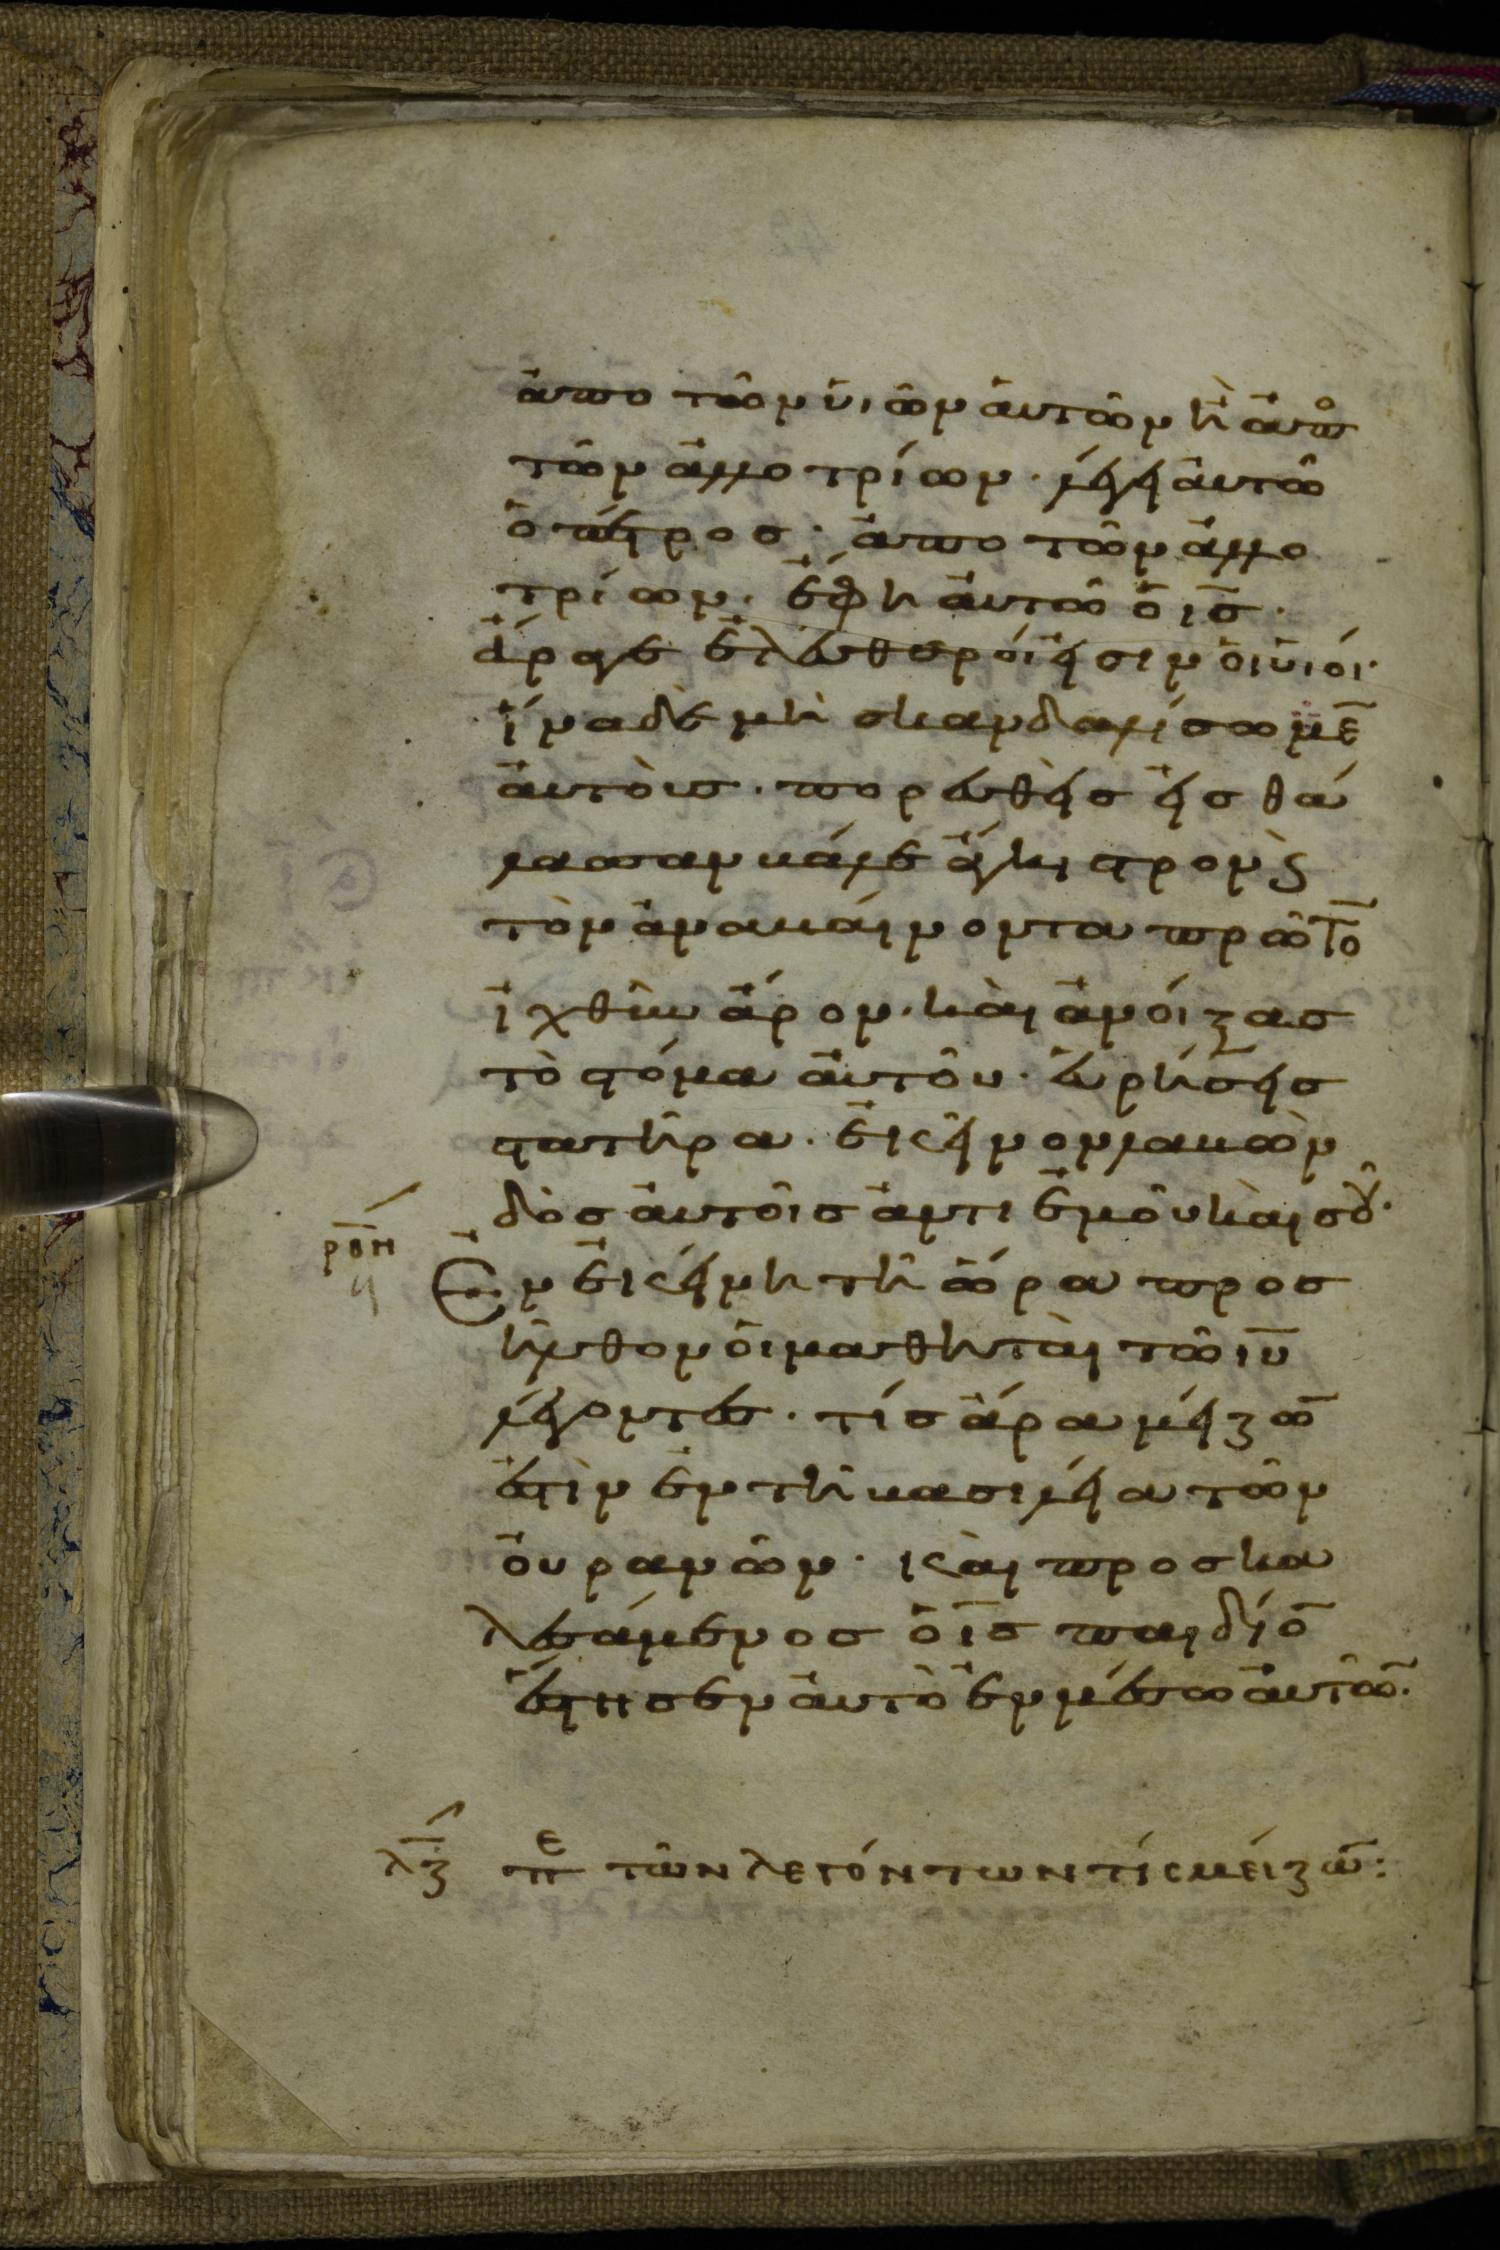 ἀπο τῶν ὑιῶν ἀυτῶν ἢ ἀπὸ
τῶν ἀλλοτρίων· λέγει ἀυτῶ
ὁ πέτρος· ἀπο τῶν ἀλλο
τρίων. ἔφη ἀυτῶ ὁ ις̅·
ἄραγε ἐλεύθεροί εἰσιν ὁι ὑιοί·
ἵνα δὲ μὴ σκανδαλίσωμε̅
ἀυτοὺσ. πορευθεὶσ εἰσ θά
λασσαν βάλε ἄγκιστρον κ̀
τὸν ἀναβάινοντα πρῶτο̅
ἰχθῦν ἆρον. κὰι ἀνοίξασ
τὸ στόμα ἀυτοῦ. ἑυρήσεισ
στατῆρα. ἐκεῖνον λαβὼν
δὸσ ἀυτοῖσ ἀντι ἐμοῦ κὰι σοῦ·
ροη
Ἐν ἐκείνη τῆ ὥρα προσ
ῆλθον ὁι μαθητὰι τῶ ιυ̅
λέγοντεσ. τίσ ἄρα μείζω̅
ἐστὶν ἐν τῆ βασιλεία τῶν
ὀυρανῶν· κὰι προσκα
λεσάμενοσ ὁ ις̅ παιδίο̅
ἔστησεν ἀυτὸ ἐν μέσω ἀυτῶ̅.
λζ πε τῶν λεγόντων τίς μείζω̅: